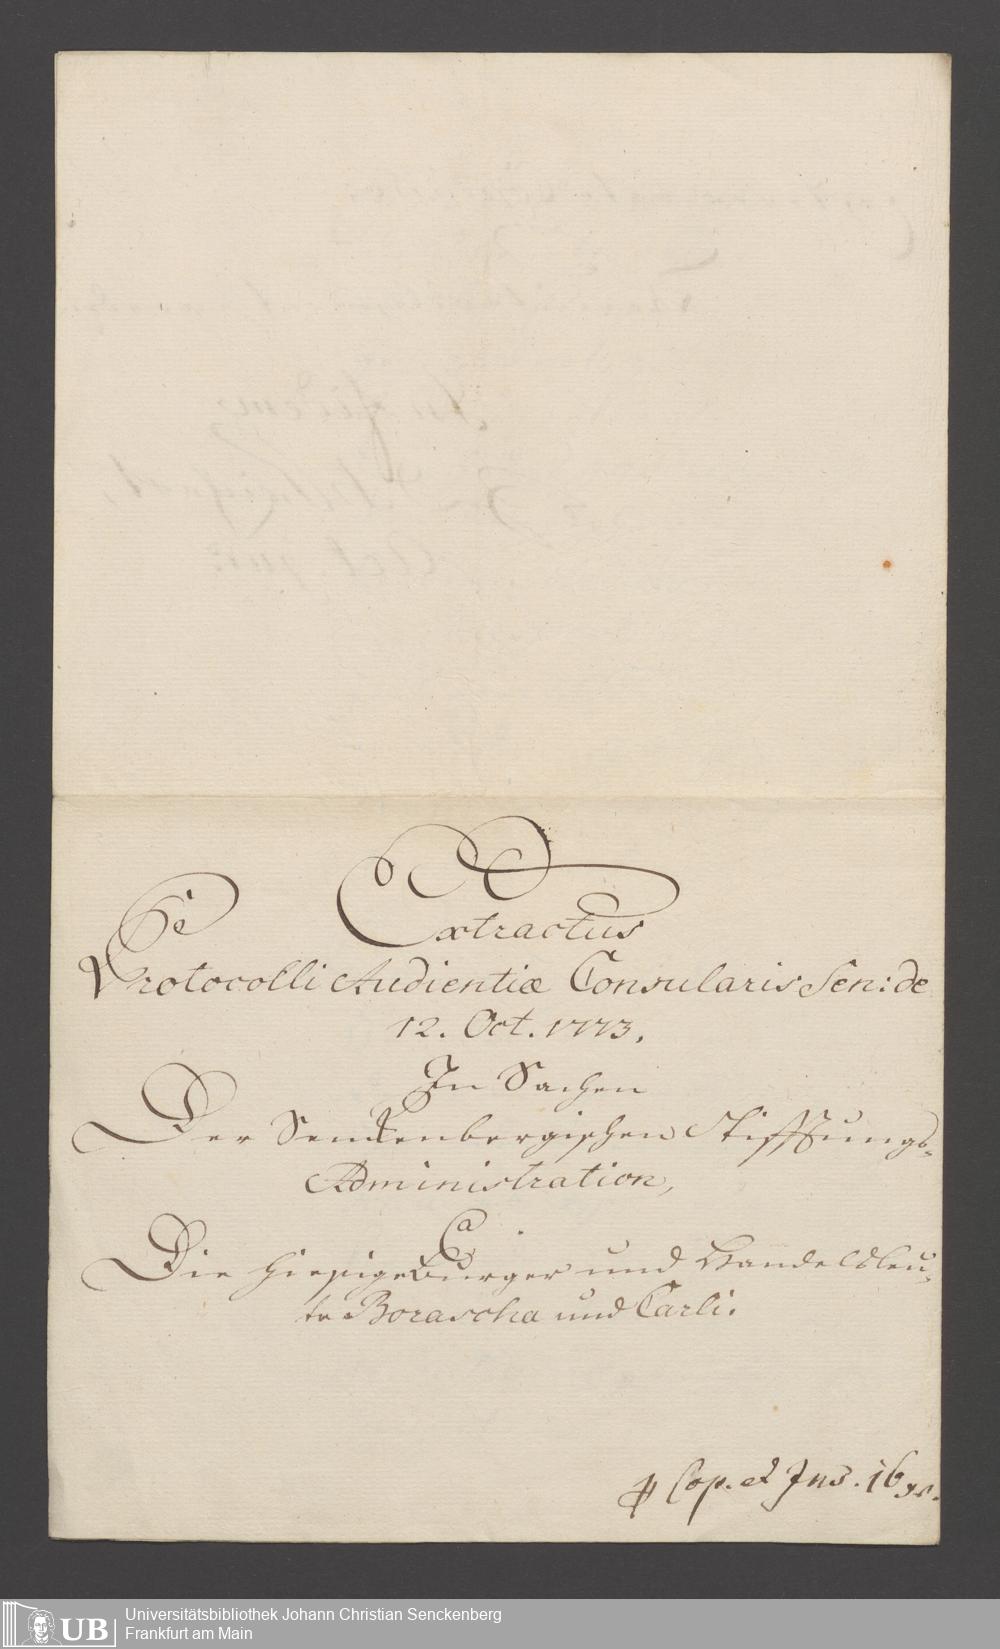 Extractus
Protocolli Audientiæ Consularis Sen: de
12. Oct. 1773.
In Sachen
Der Senckenbergischen Stifftungs-
Administration,
Ca
Die hiesige Burger und Handelsleu-
te Borascha und Carli.
Cop. et Ins. 16 xr.
UB
Universitätsbibliothek Johann Christian Senckenberg
Frankfurt am Main